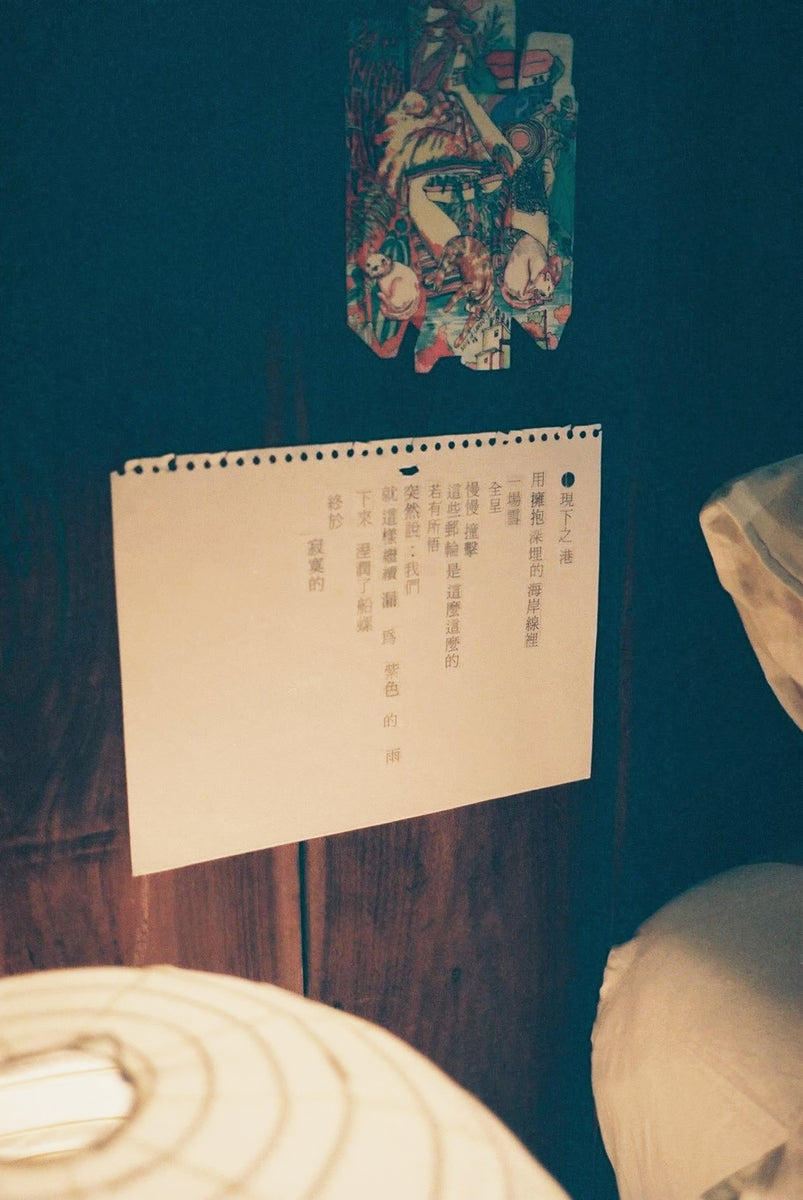 ●現下之港
用擁抱深埋的海岸線裡
一場雪
全呈
慢慢 撞擊
這些郵輪是這麼這麼的
若有所悟
突然說：我們
就這樣繼續 漏 為 紫色 的 雨
下來 溼潤了船螺
終於
寂寞的